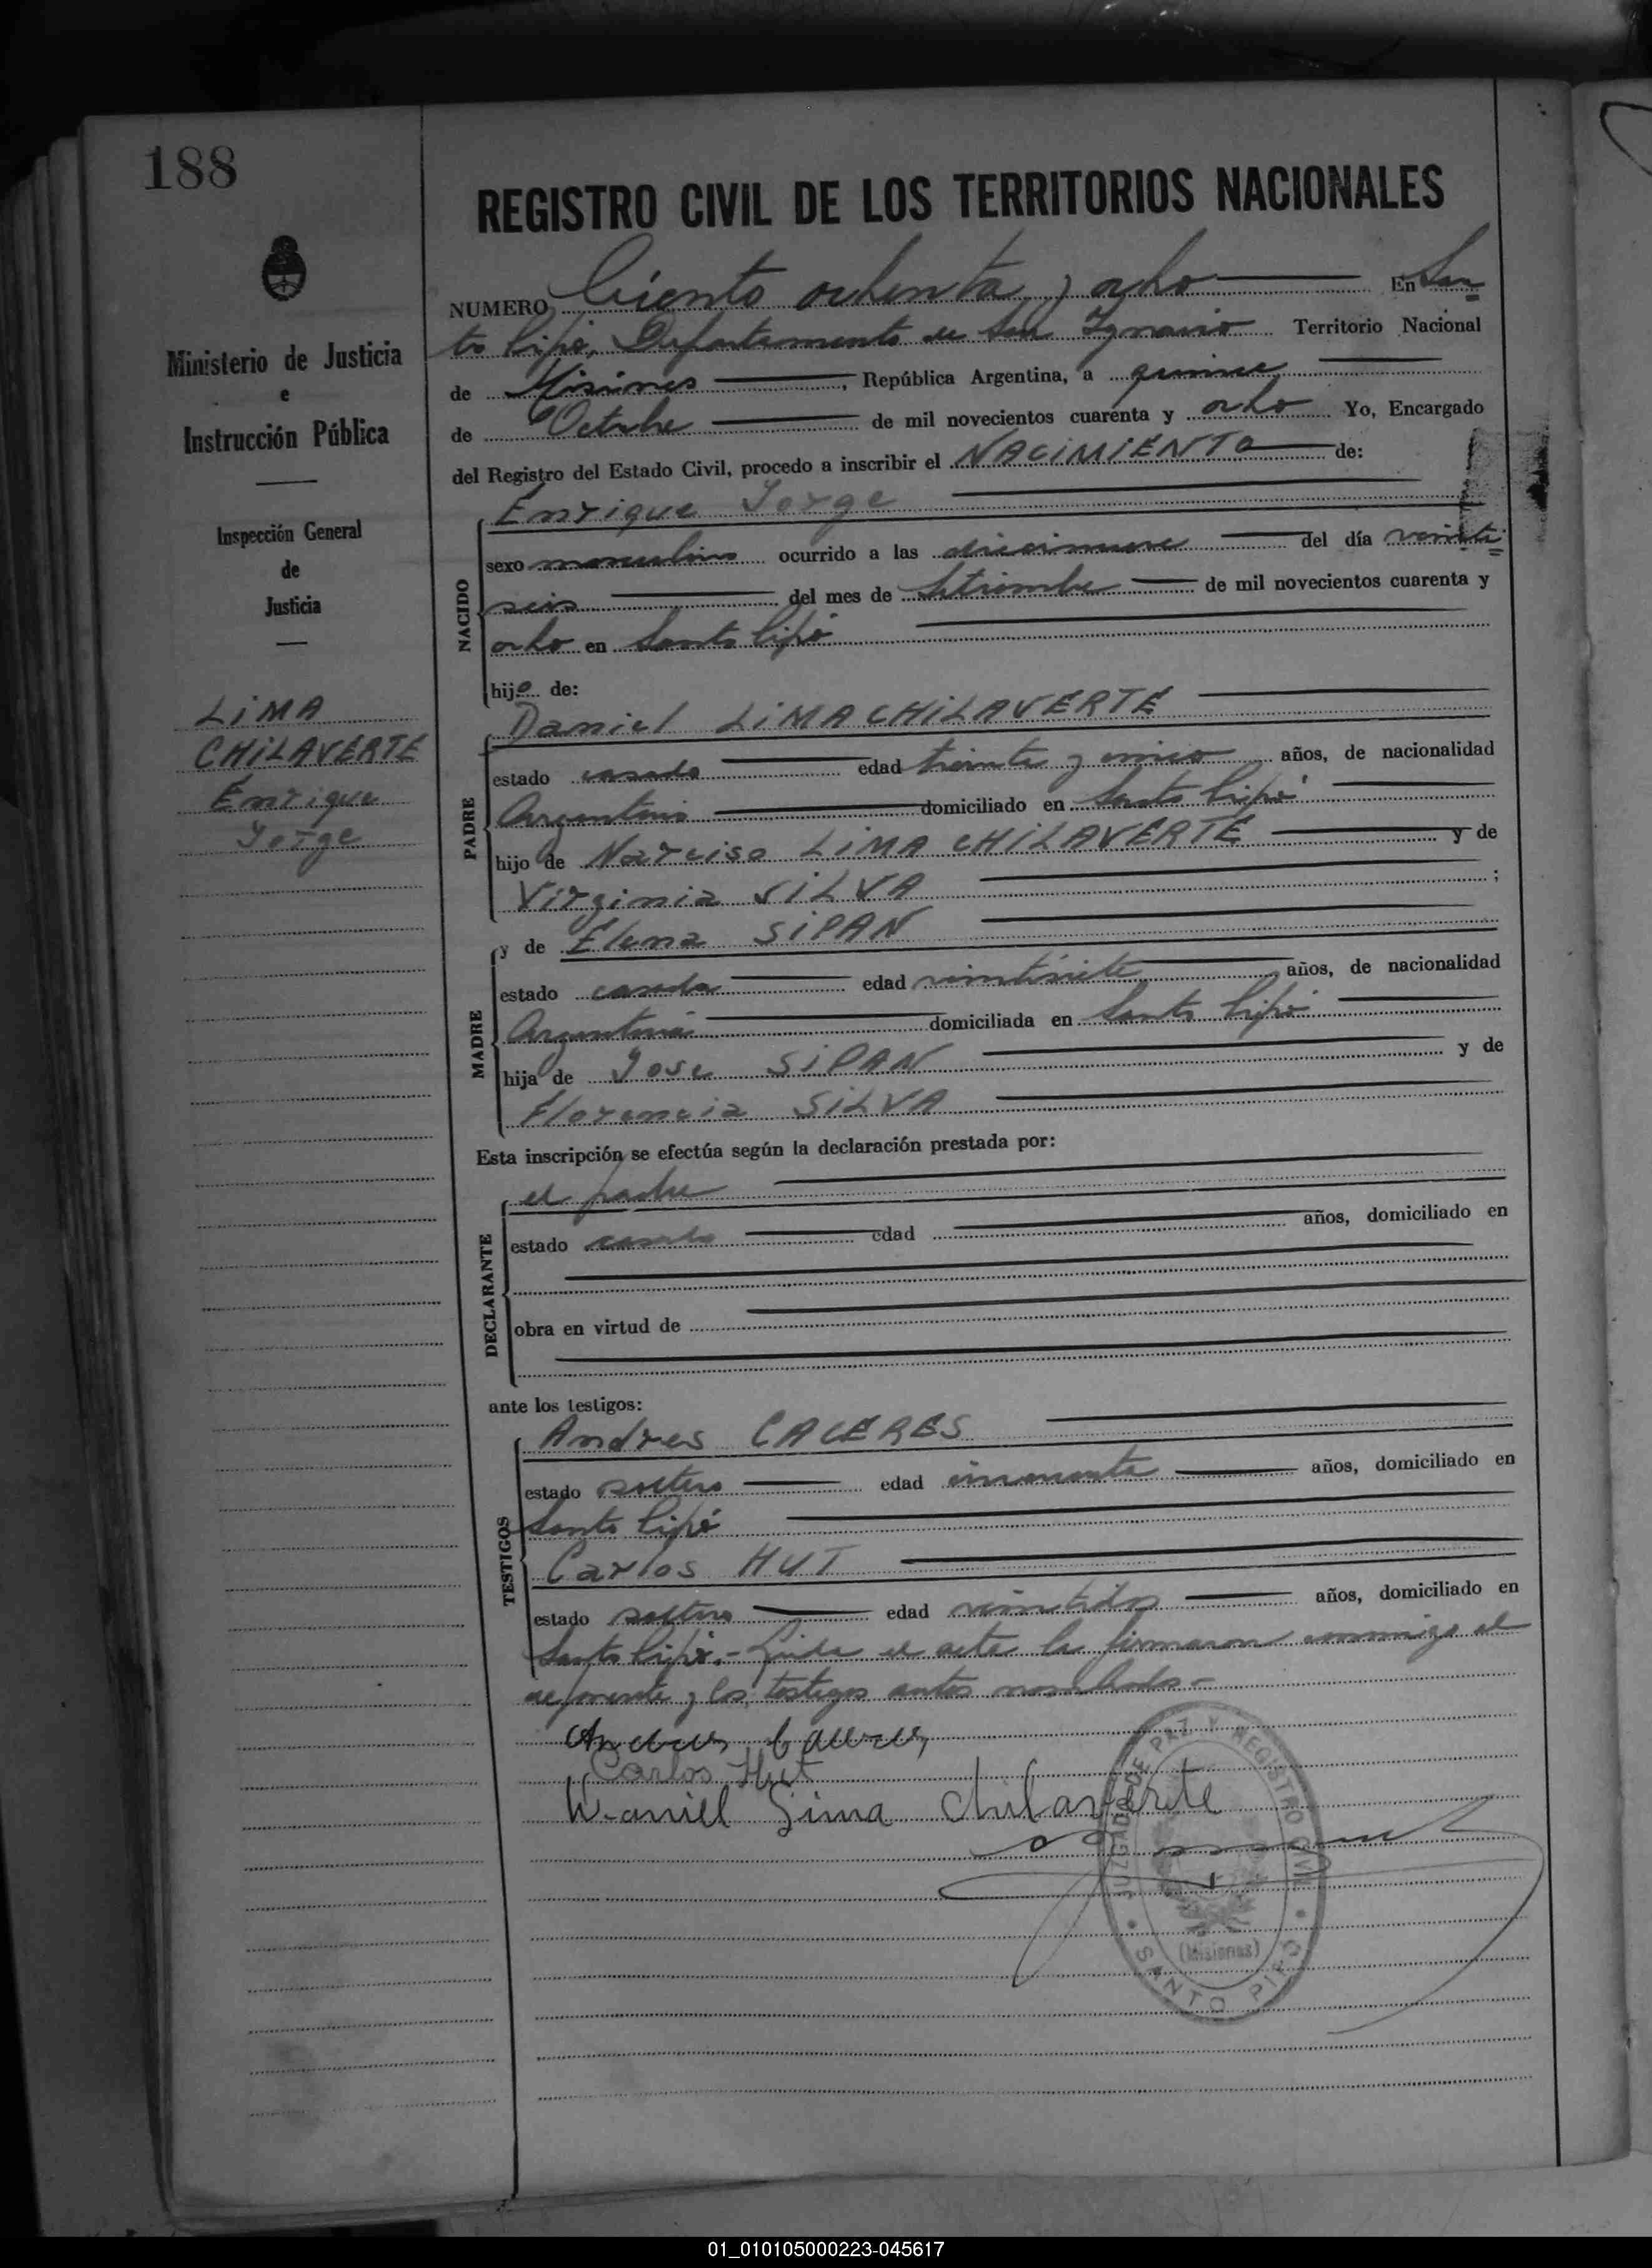 188
REGISTRO CIVIL DE LOS TERRITORIOS NACIONALES
Ministerio de Justicia
e
Instrucción Pública
Inspección General
de
Justicia
LIMA
CHILAVERTE
Enrique
Jorge
NUMERO Ciento ochenta y ocho En San
to Pipó, Departamento de San Ignacio Territorio Nacional
de Misiones, República Argentina, a quince
de Octubre de mil novecientos cuarenta y ocho Yo, Encargado
del Registro del Estado Civil, procedo a inscribir el NACIMIENTO de:
NACIDO
Enrique Jorge
sexo masculino ocurrido a las diecinueve del día veinti
seis del mes de Setiembre de mil novecientos cuarenta y
ocho en Santo Pipó
hijo de:
PADRE
Daniel LIMA CHILAVERTE
estado casado edad treinta y años, de nacionalidad
Argentino domiciliado en Santo Pipó
hijo de Narciso LIMA CHILAVERTE y de
Virginia SILVA ;
MADRE
y de Elena SIPAN
estado casada edad veintisiete años, de nacionalidad
Argentina domiciliada en Santo Pipó
hija de Jose SIPAN y de
Florencia SILVA
Esta inscripción se efectúa según la declaración prestada por:
DECLARANTE
el padre
estado casado edad años, domiciliado en
obra en virtud de
ante los testigos:
TESTIGOS
Andres CACERES
estado soltero edad cincuenta años, domiciliado en
Santo Pipó
Carlos HUT
estado soltero edad veintidos años, domiciliado en
Santo Pipó.- Leida el acta la firmaron conmigo el
y los testigos antes nombrados-
Andres Caceres
Carlos Hut
Daniel Lima Chilaverte
JUZGADO DE PAZ Y REGISTRO CIVIL
(Misiones)
SANTO PIPO
01_010105000223-045617